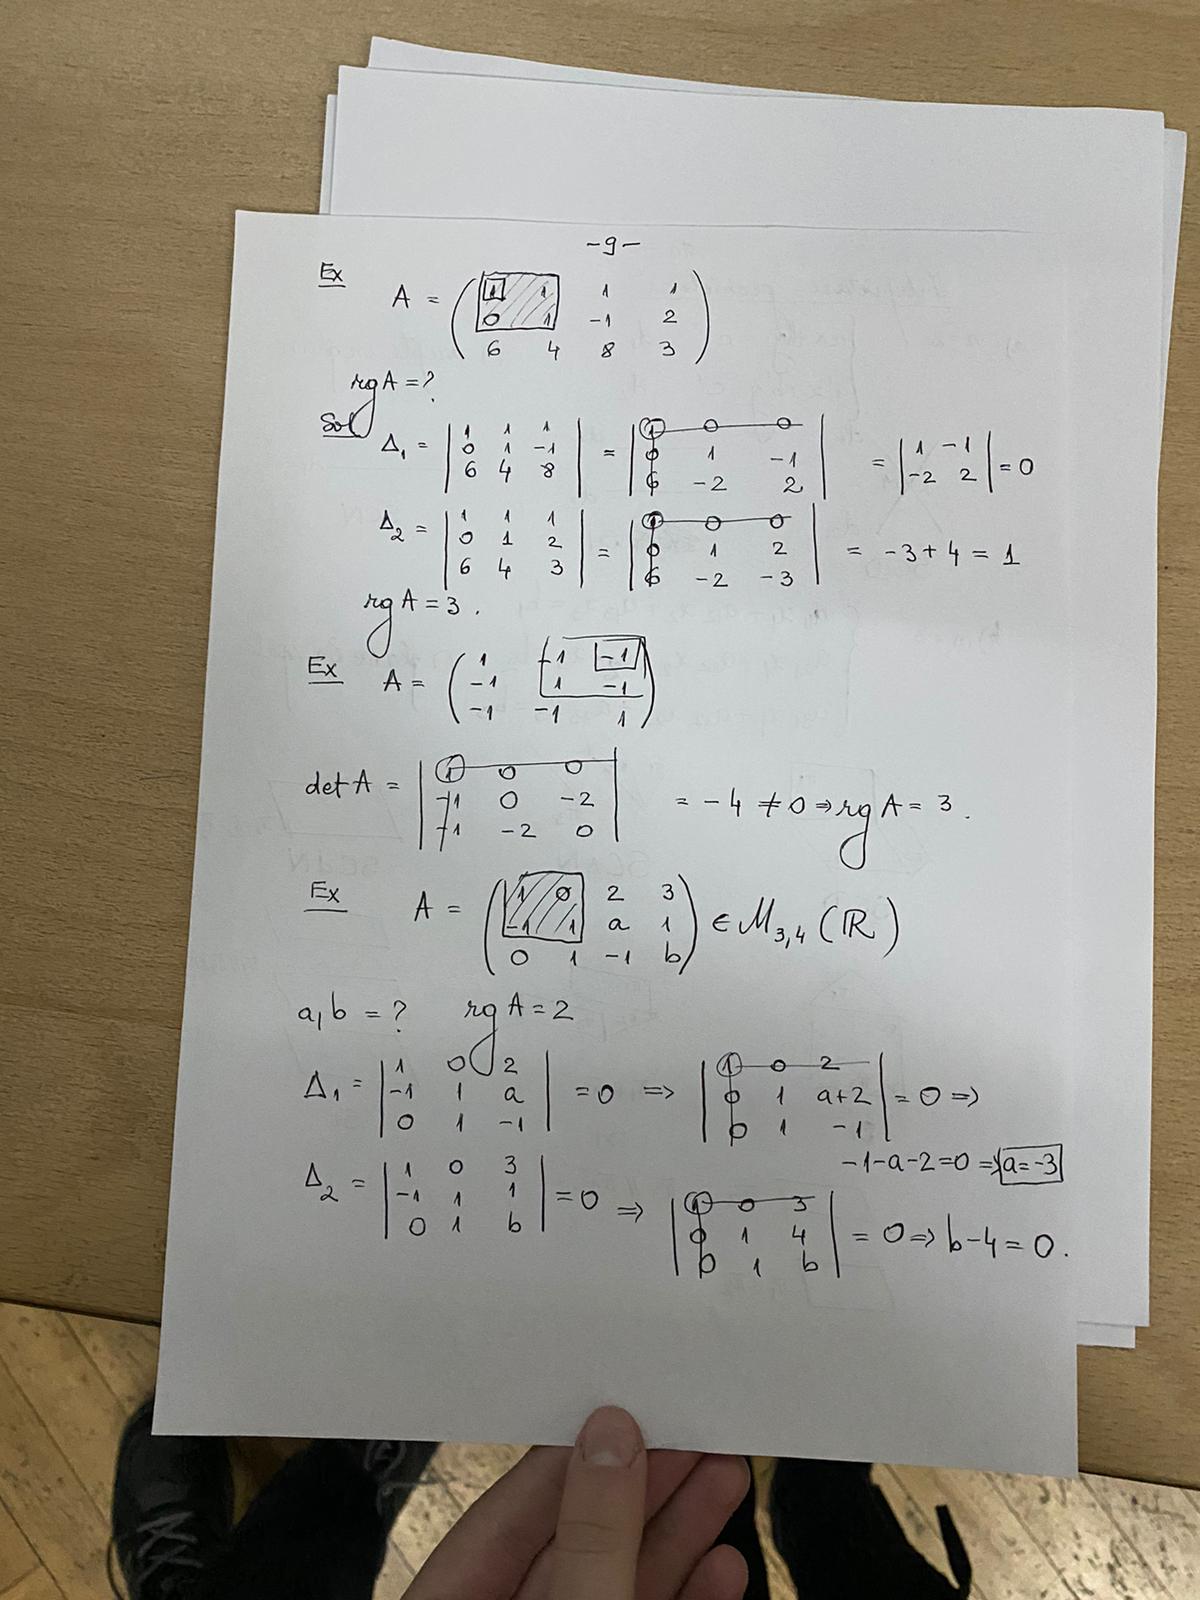 -9-
Ex
A = ( 1 1 1 1
0 1 -1 2
6 4 8 3 )
rg A = ?
Sol
Δ₁ = | 1 1 1
0 1 -1
6 4 8 | = | 1 0 0
0 1 -1
6 -2 2 | = | 1 -1
-2 2 | = 0
Δ₂ = | 1 1 1
0 1 2
6 4 3 | = | 1 0 0
0 1 2
6 -2 -3 | = -3+4 = 1
rg A = 3.
Ex A = ( 1 -1 -1
-1 1 -1
-1 -1 1 )
det A = | 1 0 0
-1 0 -2
-1 -2 0 | = -4 ≠ 0 ⇒ rg A = 3.
Ex A = ( 1 0 2 3
-1 1 a 1
0 1 -1 b ) ∈ M₃,₄ (ℝ)
a, b = ? rg A = 2
Δ₁ = | 1 0 2
-1 1 a
0 1 -1 | = 0 ⇒ | 1 0 2
0 1 a+2
0 1 -1 | = 0 ⇒
-1-a-2=0 ⇒ a=-3
Δ₂ = | 1 0 3
-1 1 1
0 1 b | = 0 ⇒ | 1 0 3
0 1 4
0 1 b | = 0 ⇒ b-4 = 0.